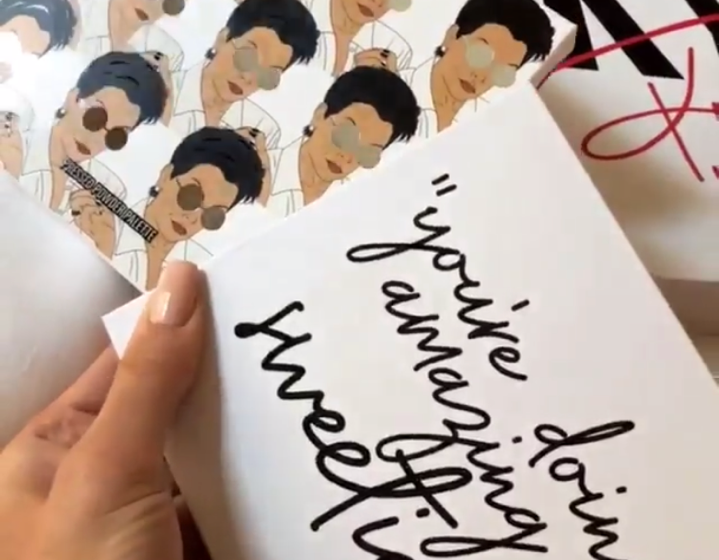 PRESSED POWDER PALETTE
"you're doin
amazing
sweeti